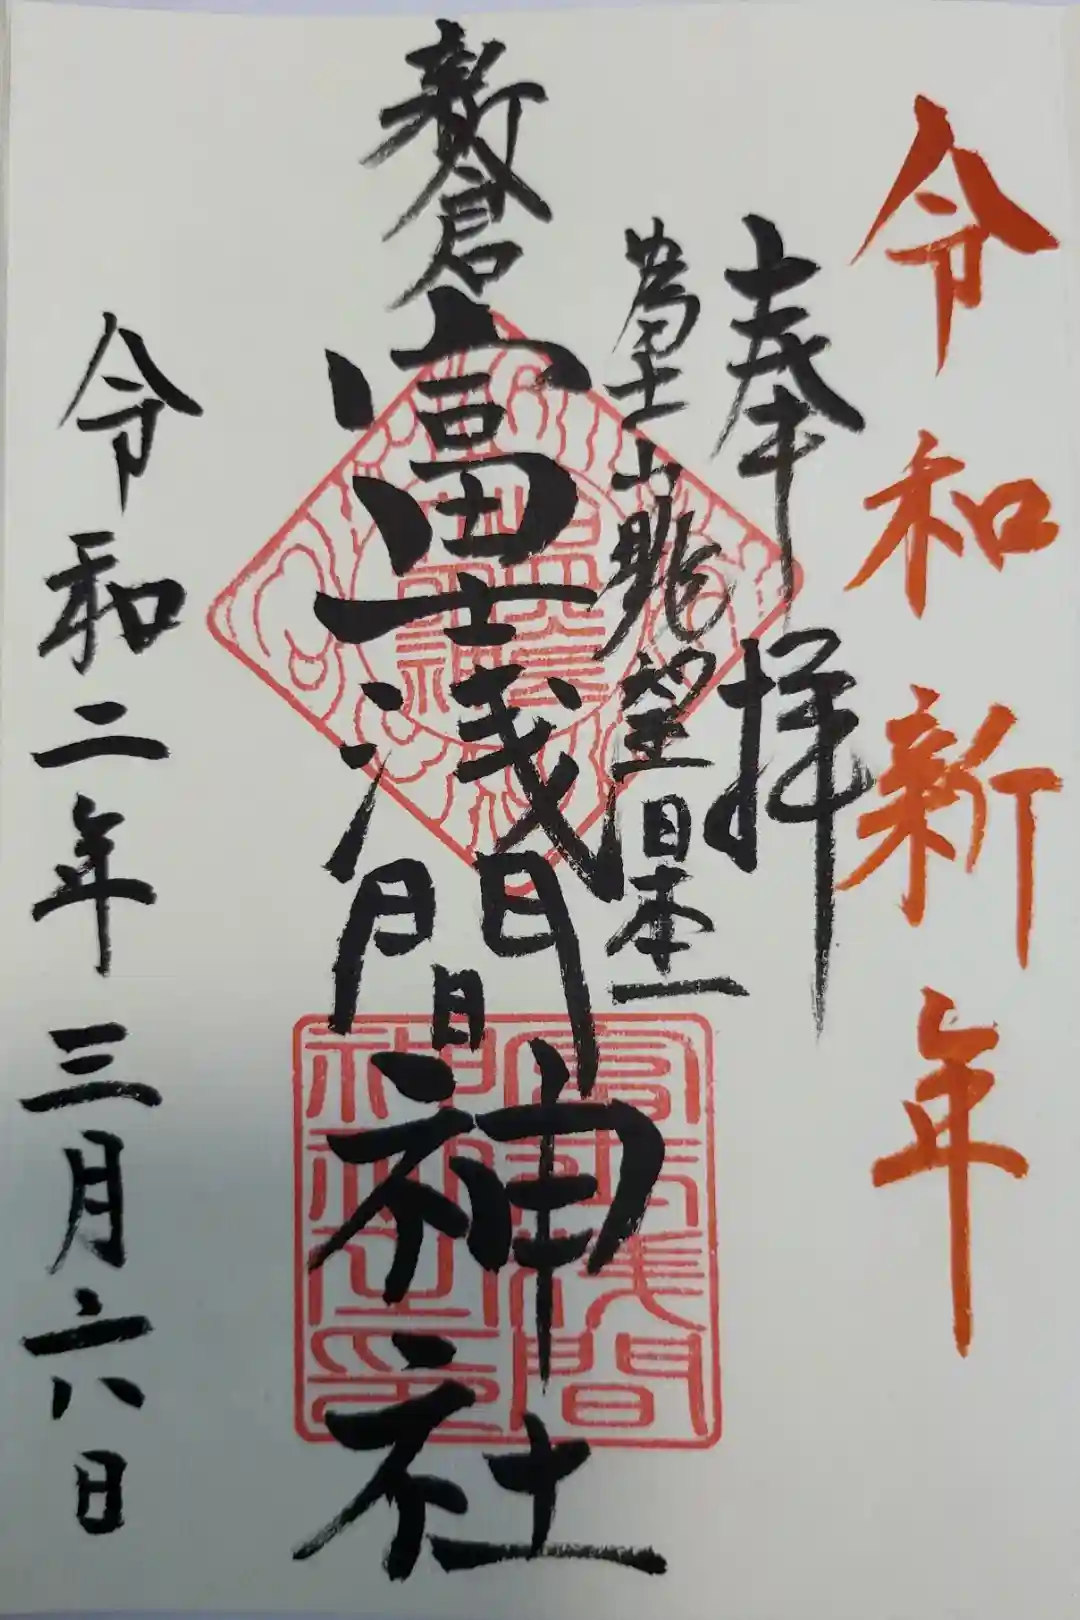 令和新年
奉拝
富士山眺望日本一
新倉富士浅間神社
令和二年三月六日